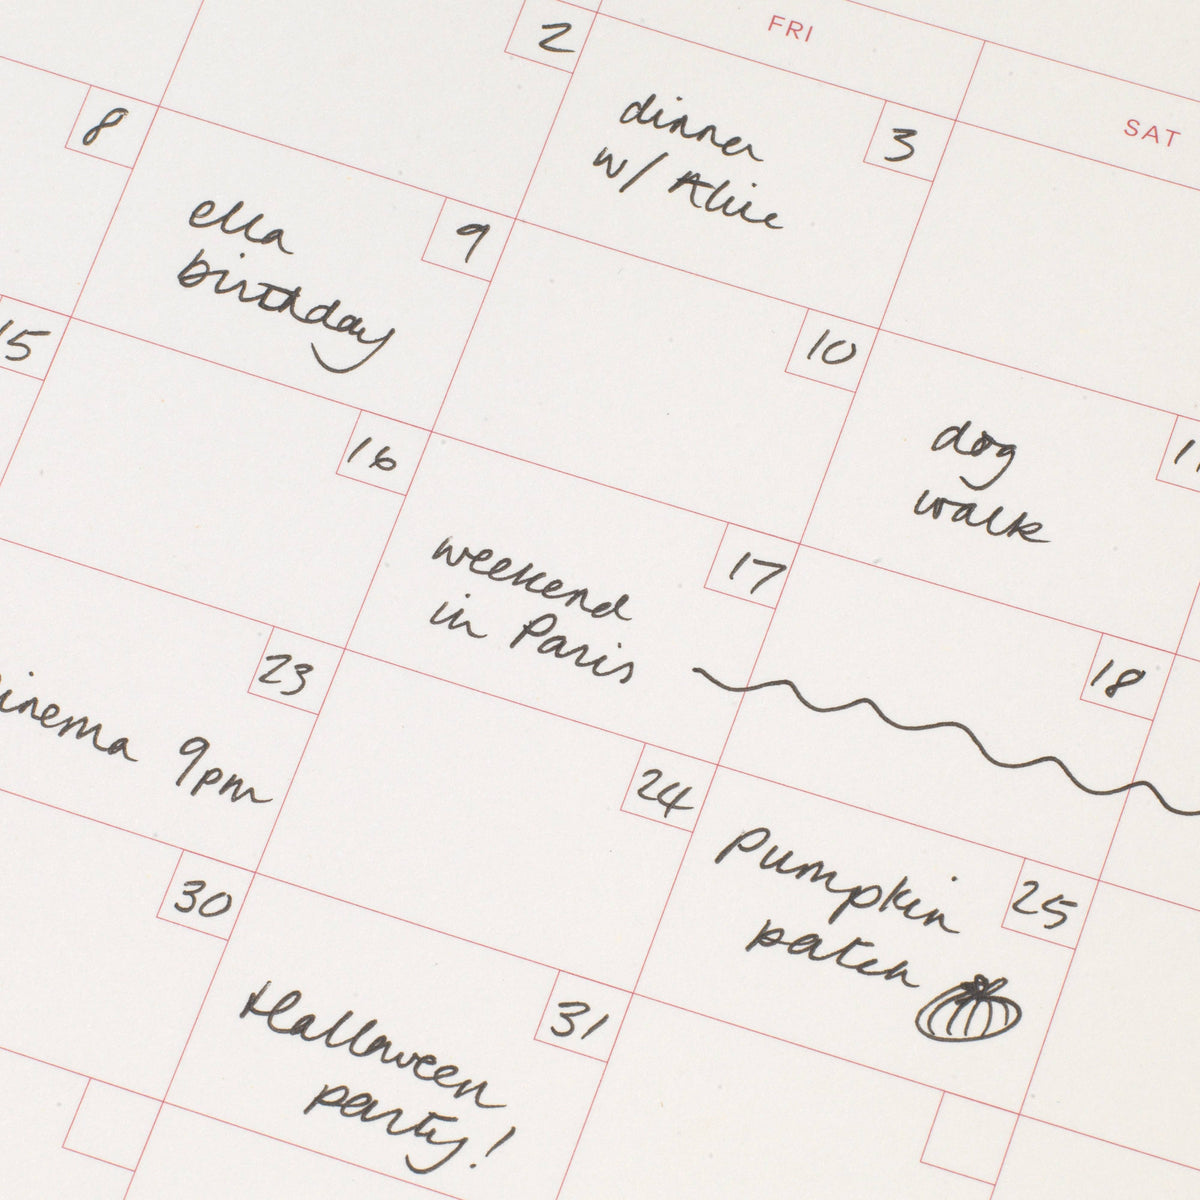 FRI
SAT
2
dinner
w/ Alice
3
8
ella
birthday
9
10
dog
walk
11
15
16
weekend
in Paris
17
18
cinema 9pm
23
24
Pumpkin
patch
25
30
Halloween
party!
31